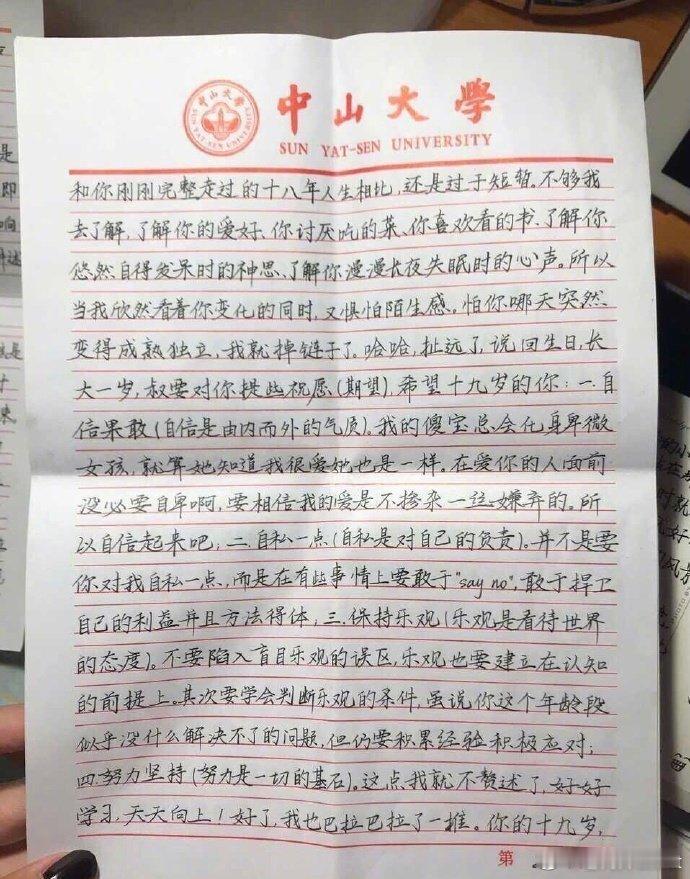 中山大學
SUN YAT-SEN UNIVERSITY
和你刚刚完整走过的十八年人生相比，还是过于短暂。不够我
去了解，了解你的爱好、你讨厌吃的菜、你喜欢看的书、了解你
悠然自得发呆时的神思、了解你漫漫长夜失眠时的心声。所以
当我欣然看着你变化的同时，又惧怕陌生感。怕你哪天突然
变得成熟独立，我就掉链子了。哈哈，扯远了，说回生日，长
大一岁，叔要对你提些祝愿(期望)，希望十九岁的你：一.自
信果敢(自信是由内而外的气质)。我的傻宝总会化身卑微
女孩，就算她知道我很爱她也是一样。在爱你的人面前
没必要自卑啊，要相信我的爱是不掺杂一丝嫌弃的。所
以自信起来吧；二.自私一点(自私是对自己的负责)。并不是要
你对我自私一点，而是在有些事情上要敢于"say no"，敢于捍卫
自己的利益并且方法得体；三.保持乐观(乐观是看待世界
的态度)。不要陷入盲目乐观的误区，乐观也要建立在认知
的前提上。其次要学会判断乐观的条件，虽说你这个年龄段
似乎没什么解决不了的问题，但仍要积累经验积极应对；
四.努力坚持(努力是一切的基石)。这点我就不赘述了，好好
学习，天天向上！好了，我也巴拉巴拉了一堆。你的十九岁，
第